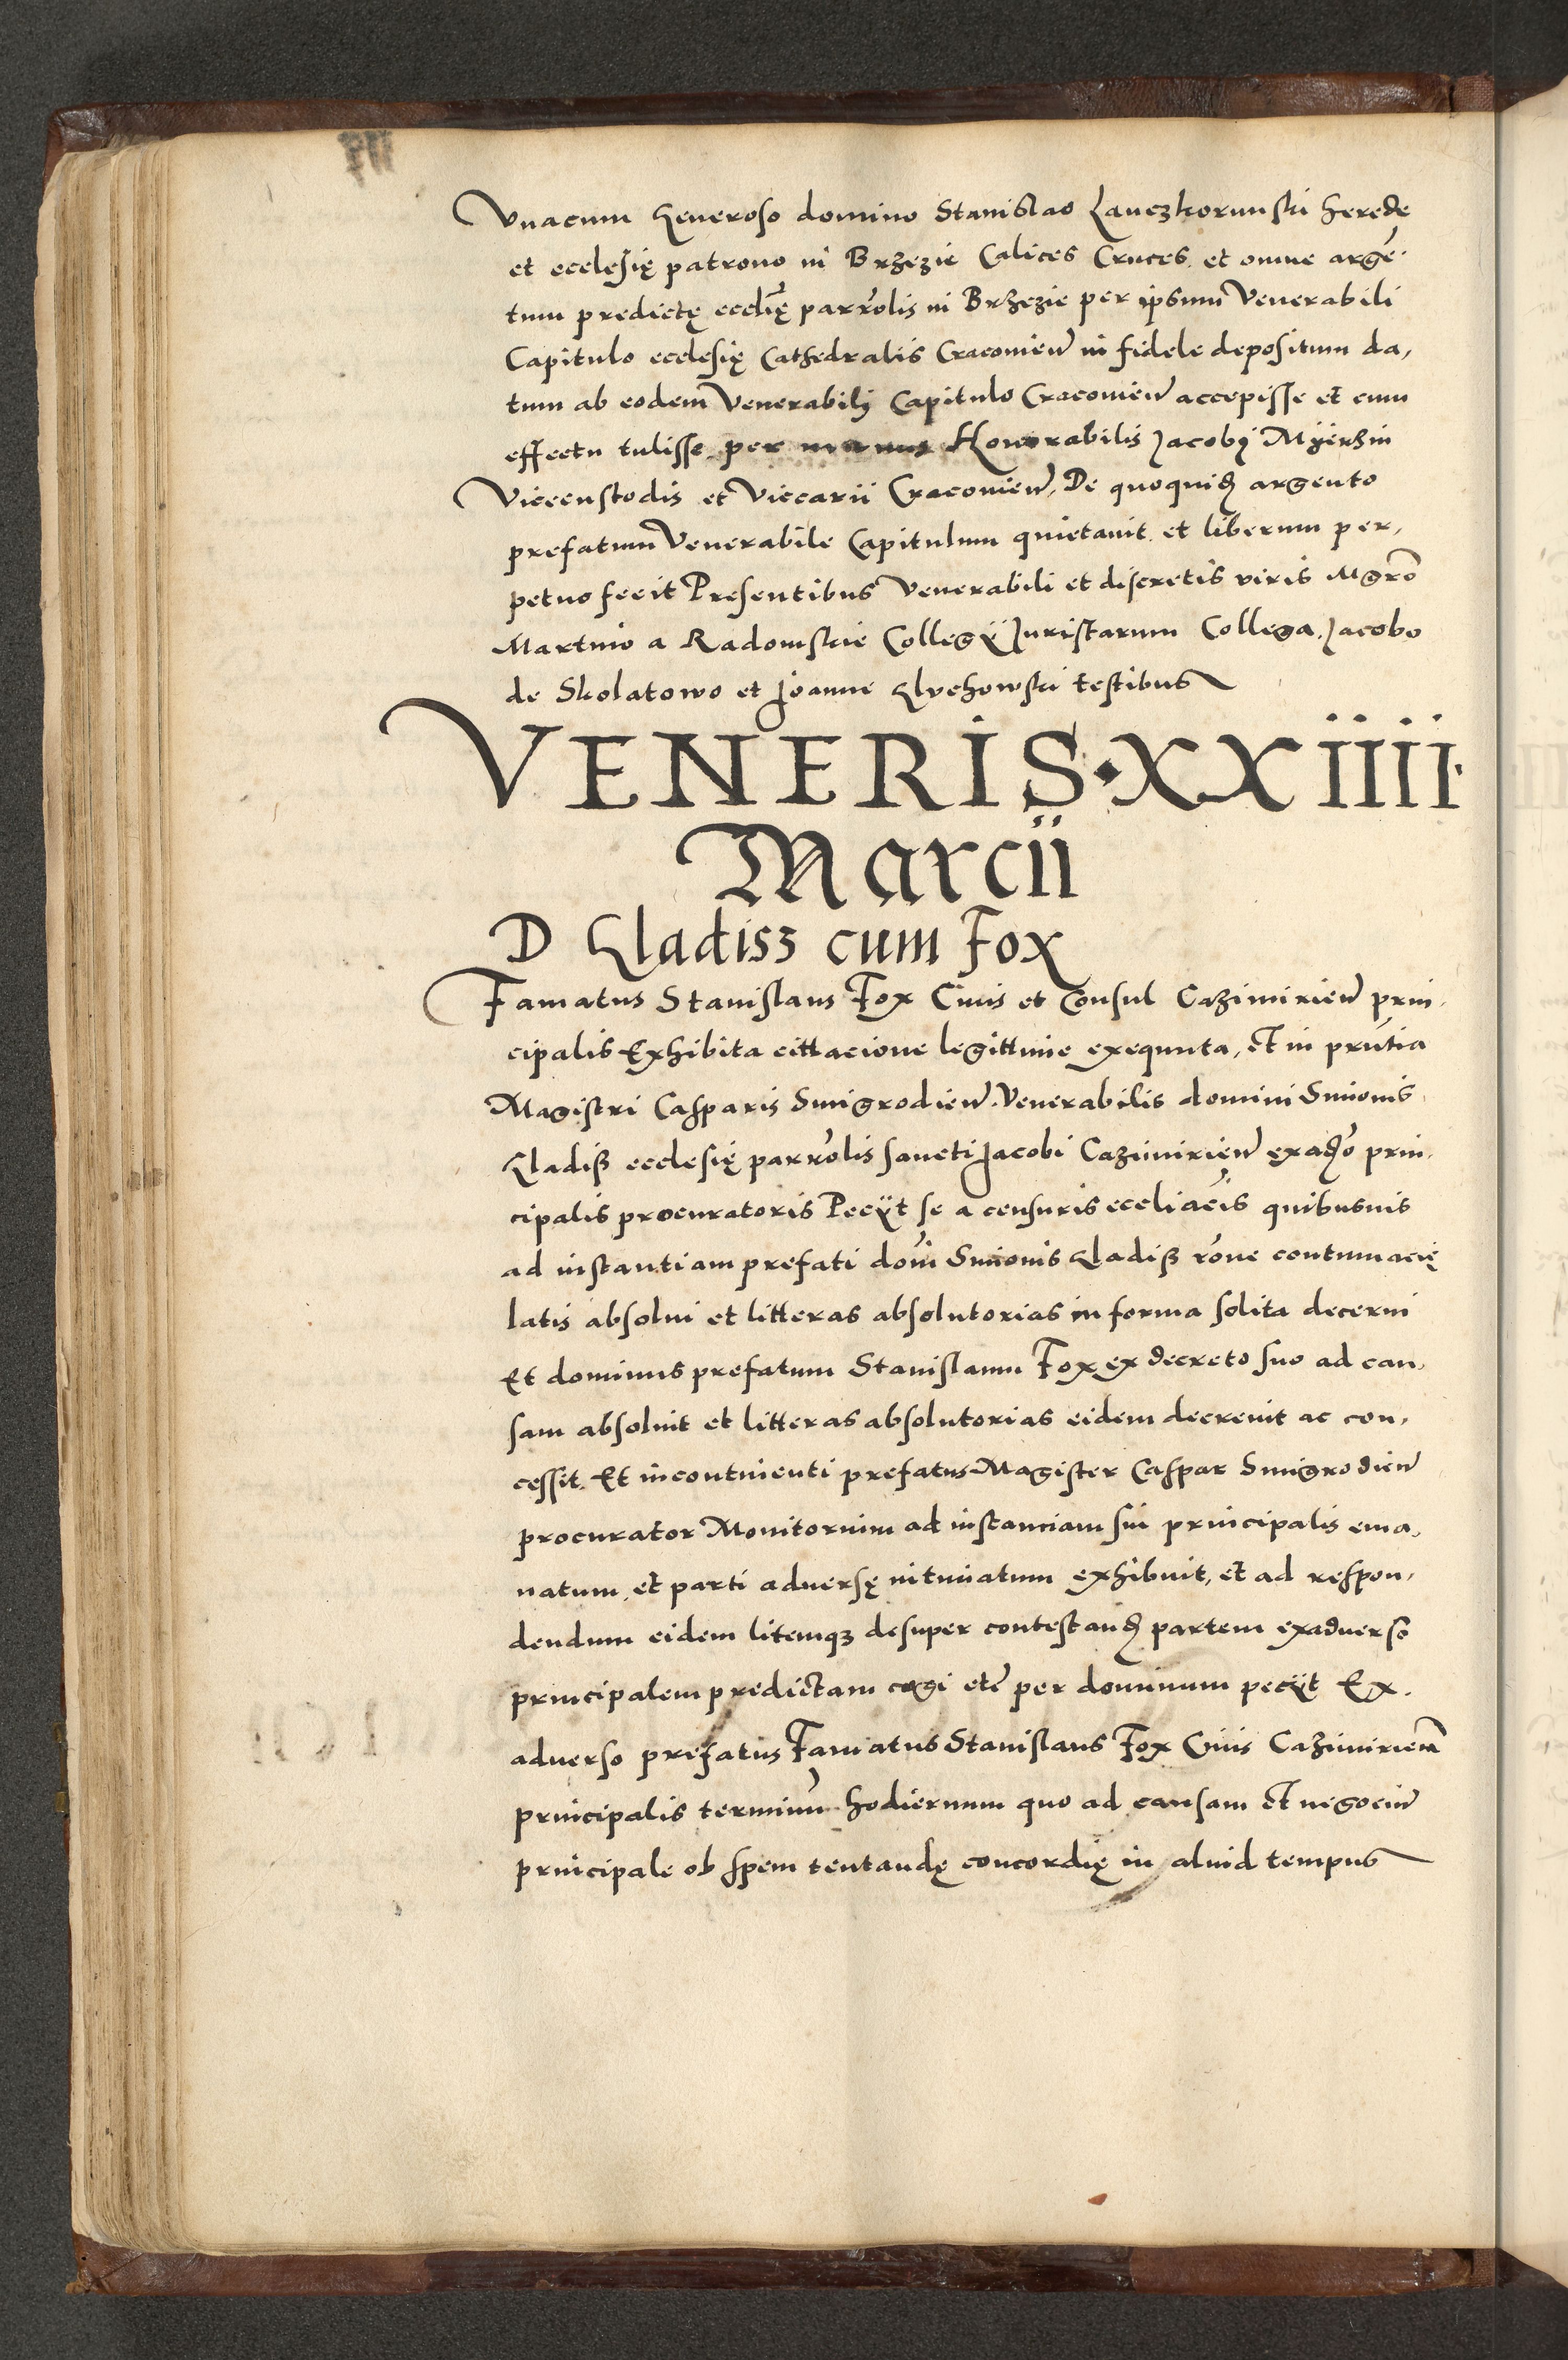 Vnacum Generoso domino Stanislao Lanczkorunski herede
et ecclesię patrono in Brzezie Calices Cruces et omne argē-
tum predictę ecclię parrolis in Brzezie per ipsum Venerabili
Capitulo ecclesię Cathedralis Cracovien in fidele depositum da,
tum ab eodem Venerabilj Capitulo Cracovien accepisse et cum
effectu tulisse per manus Honorabilis Jacobj Myerzin
Vicecustodis et Viccarii Cracovien, De quoquid argento
prefatum Venerabile Capitulum quietavit et liberum per,
petuo fecit Presentibus Venerabili et discretis viris Mgro
Martino a Radomskie Collegÿ Juristarum Collega, Jacobo
de Skolatowo et Joanne Glvchowski testibus
VENERIS·XXIIII·
Marcii
D Gladisz cum Fox
Famatus Stanislaus Fox Civis et Consul Cazimirien prin,
cipalis Exhibita cittacione legittime exequuta, et in prntia
Magistri Casparis Smigrodien Venerabilis domini Simonis
Gladiß ecclesię parrolis sancti Jacobi Cazimirien exadso prin,
cipalis procuratoris Pecÿt se a censuris eccliacis quibusvis
ad instantiam prefati domi Simonis Gladiß rone contumacię
latis absolui et litteras absolutorias in forma solita decerni
Et dominus prefatum Stanislaum Fox ex decreto suo ad cau,
sam absoluit et litteras absolutorias eidem decreuit ac con,
cessit. Et incontinenti prefatus Magister Caspar Smigrodien
procurator Monitorium ad instanciam sui principalis ema,
natum, et parti adversę intimatum exhibuit, et ad respon,
dendum eidem litemqz desuper contestand partem exadverso
principalem predictam cogi etc per dominum pecÿt Ex,
adverso prefatus Famatus Stanislaus Fox Civis Cazimirien
principalis terminū hodiernum quo ad causam et negociū
principale ob spem tentandę concordię in aliud tempus